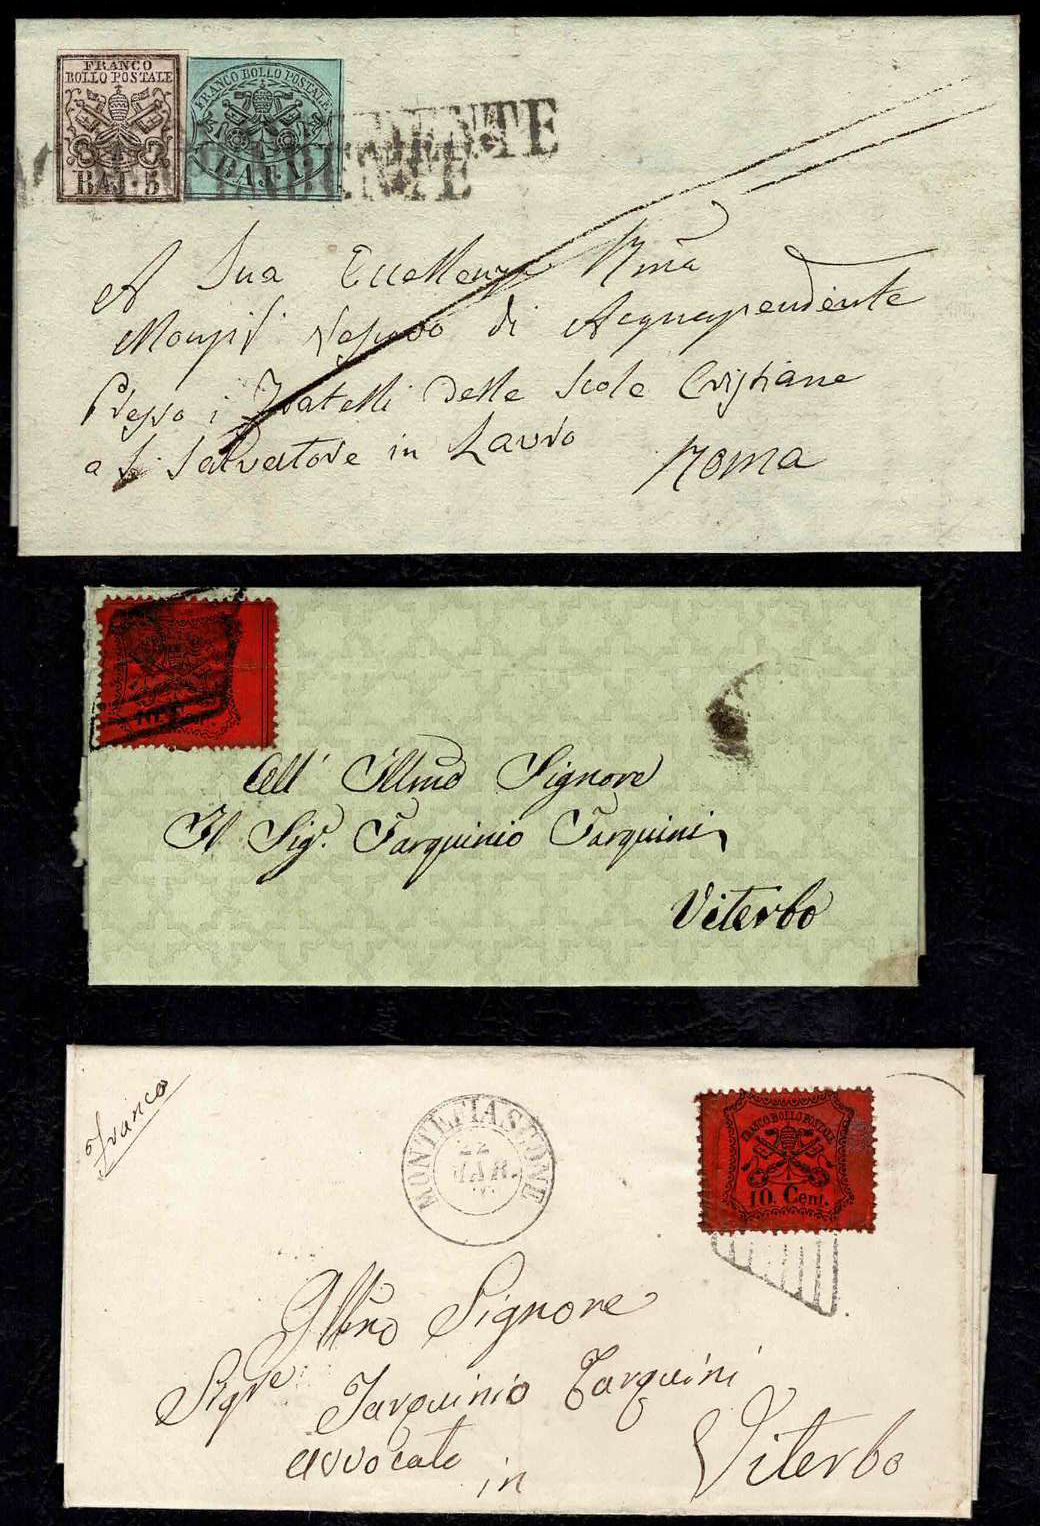 FRANCO
BOLLO POSTALE
BAJ. 5
FRANCO BOLLO POSTALE
BAJ. 1
A Sua Eccellenza Rma
Monsig Vescovo di Acquapendente
Presso i Fratelli delle Scole Cristiane
a S. Salvatore in Lauro
Roma
All' Illmo Signore
Il Sigr. Tarquinio Tarquini
Viterbo
Franco
MONTEFIASCONE
22
MAR.
FRANCO BOLLO POSTALE
10. Cent.
Illmo Signore
Sigre Tarquinio Tarquini
avvocato
in Viterbo